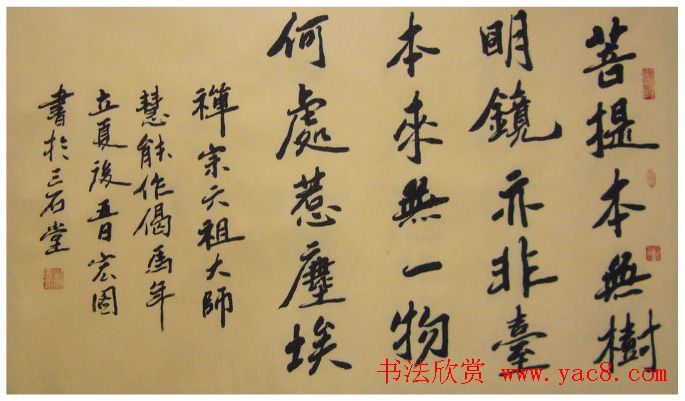 菩提本無樹
明鏡亦非臺
本來無一物
何處惹塵埃
禪宗六祖大師
慧能作偈馬年
立夏後五日宏圖
書於三石堂
书法欣赏 www.yac8.com